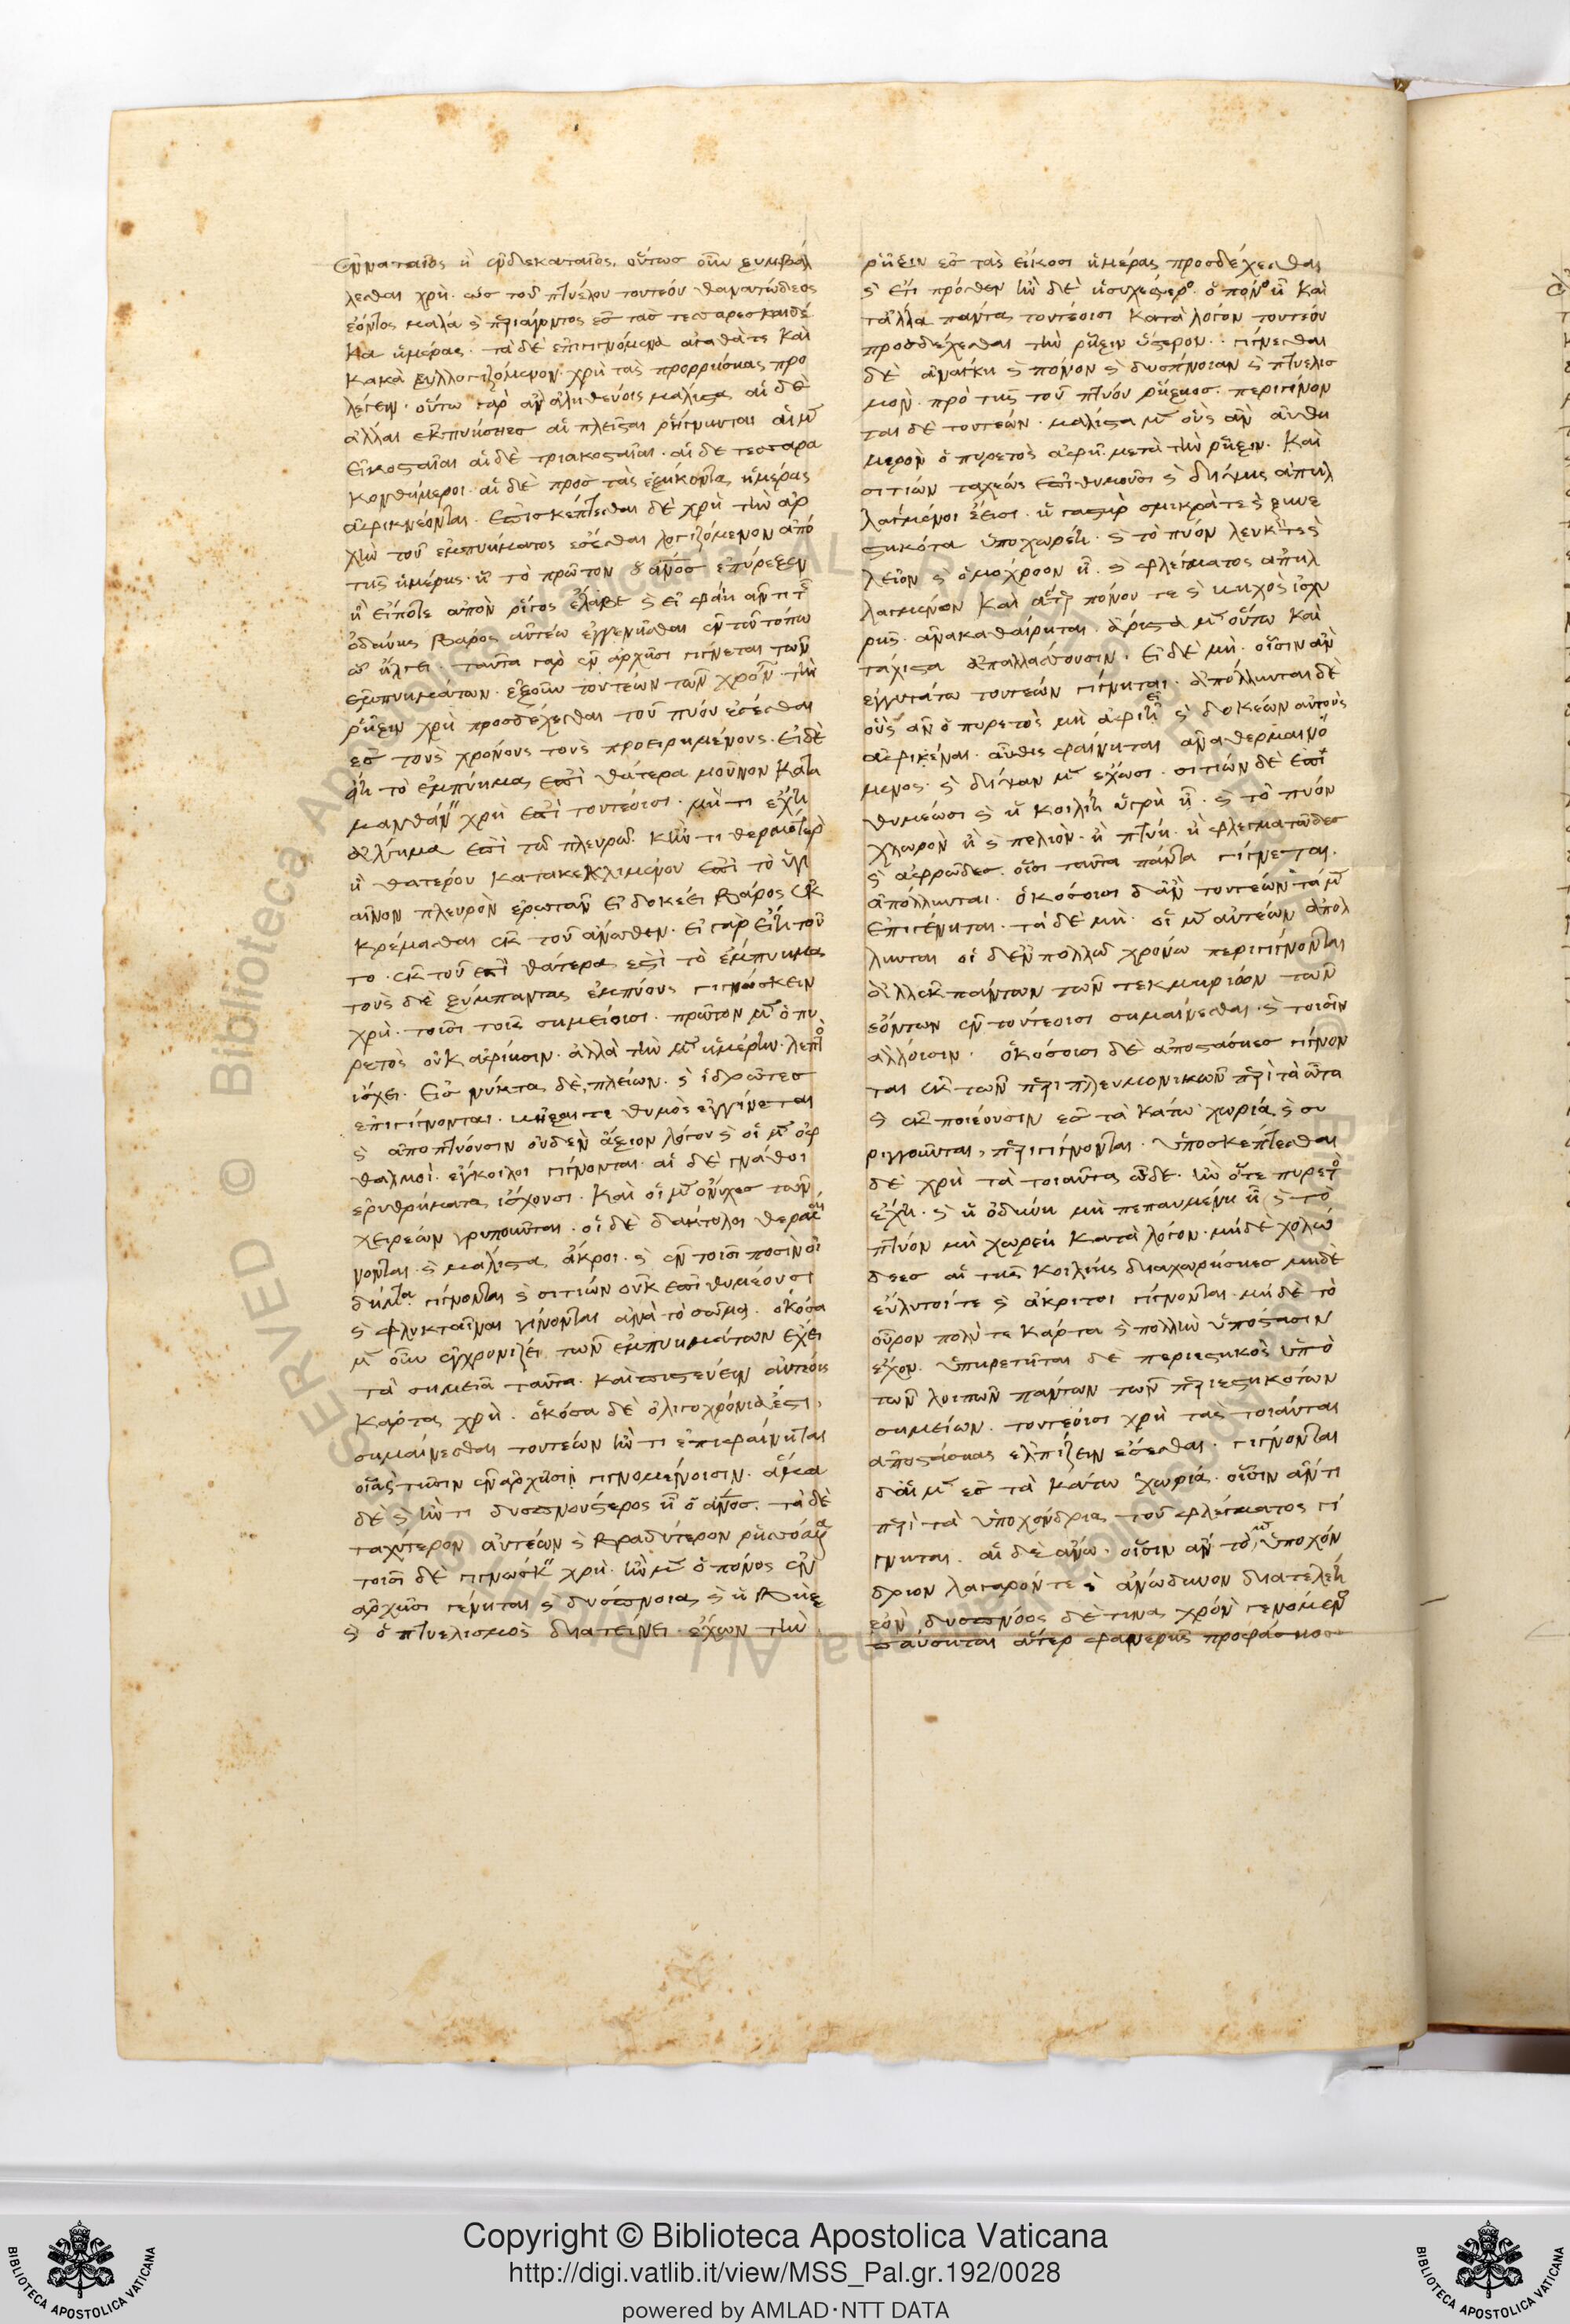 ἐνναταῖος ἢ ἑνδεκαταῖος. οὕτως οὖν ξυμβάλ
λεσθαι χρὴ. ὡς τοῦ πτυέλου τουτέου θανατώδεος
ἐόντος μαλα καὶ περιάγοντος ἐς τὰς τεσσαρεσκαιδέ
κα ἡμέρας. τὰ δὲ ἐπιγιγνόμενα ἀγαθά τε καὶ
κακὰ ξυλλογιζόμενον χρὴ τὰς προρρήσιας προ
λέγειν. οὕτω γὰρ ἂν ἀληθεύοις μάλιστα αἱ δὲ
ἄλλαι ἐκπυήσηες αἱ πλεῖσται ῥήγνυνται αἱ μὲν
εἰκοσταῖαι αἱ δὲ τριακοσταῖαι. αἱ δὲ τεσσαρα
κονθήμεροι. αἱ δὲ προς τὰς ἑξήκοντα ἡμέρας
ἀφικνέονται. ἐπισκέπτεσθαι δὲ χρὴ τὴν ἀρ
χὴν τοῦ ἐμπυήματος ἔσεσθαι λογιζόμενον ἀπό
τῆς ἡμέρης. ᾗ τὸ πρῶτον ὁ ἄνθρωπος ἐπύρεξεν
ἢ εἴποτε αὐτὸν ῥῖγος ἔλαβε καὶ εἰ φαίη ἀντὶ τῆς
ὀδύνης βάρος αὐτέω ἐγγενῆσθαι ἐν τῶ τόπω
ὧ ἤλγει. ταῦτα γὰρ ἐν ἀρχῆσι γίγνεται τῶν
ἐμπυημάτων. ἐξ οὖν τουτέων τῶν χρόνων τὴν
ῥῆξιν χρὴ προσδέχεσθαι τοῦ πυόυ ἔσεσθαι
ἐς τοὺς χρόνους τοὺς προειρημένους. εἰ δὲ
εἴη τὸ ἐμπύημα ἐπὶ θάτερα μοῦνον κατα
μανθάνειν χρὴ ἐπὶ τουτέοισι. μή τι ἔχη
ἄλγημα ἐπὶ τῶ πλευρῶ. κἤν τι θερμότερον
ᾖ θατέρου κατακεκλιμένου ἐπὶ τὸ ὑγι
αῖνον πλευρὸν ἐρωτᾶν εἰ δοκέει βάρος ἐκ
κρέμασθαι ἐκ τοῦ ἄνωθεν. εἰ γὰρ εἴη τοῦ
το. ἐκ τοῦ ἐπὶ θάτερα ἐστὶ τὸ ἐμπύημα
τοὺς δὲ ξύμπαντας ἐμπύους γιγνώσκειν
χρὴ. τοισι τοῖς σημείοισι. πρῶτον μὲν ὁ πυ
ρετὸς οὐκ ἀφίησιν. ἀλλὰ τὴν μὲν ἡμέρην. λεπτὸς
ἴσχει. εἰς νύκτα δὲ, πλείων. καὶ ἱδρῶτες
ἐπιγίγνονται. βῆξαί τε θυμὸς ἐγγίνεται
καὶ ἀποπτύουσιν οὐδὲν ἄξιον λόγου καὶ οἱ μὲν ὀφ
θαλμοὶ. ἔγκοιλοι γίγνονται. αἱ δὲ γνάθοι
ἐρυθρήματα ἴσχουσι. καὶ οἱ μὲν ὄνυχες τῶν
χειρέων γρυποῦνται. οἱ δὲ δάκτυλοι θερμαί
νονται καὶ μάλιστα ἄκροι. καὶ ἐν τοῖσι ποσὶν οἰ
δήματα γίγνονται καὶ σιτίων οὐκ ἐπιθυμέουσι
καὶ φλυκταῖναι γίνονται ἀνὰ τὸ σῶμα. ὁκόσα
μὲν οὖν ἐγχρονίζει τῶν ἐμπυημάτων ἔχει
τὰ σημεῖα ταῦτα. καὶ πιστεύειν αὐτέοις
κάρτα χρὴ. ὁκόσα δὲ ὀλιγοχρόνιά ἐστι,
σημαίνεσθαι τουτέων ἤν τι ἐπιφαίνηται
οἷα τῆσιν ἐν ἀρχῆσι γιγνομένοισιν. ἅμα
δὲ καὶ ἤν τι δυσπνούστερος ᾖ ὁ ἄνθρωπος. τὰ δὲ
ταχύτερον αὐτέων καὶ βραδύτερον ῥηγνύμενα
τοισι δὲ γιγνώσκειν χρὴ. ἢν μὲν ὁ πόνος ἐν
ἀρχῆσι γένηται καὶ δύσπνοια καὶ ἡ βὴξ
καὶ ὁ πτυελισμὸς διατείνει ἔχων τὴν
ῥῆξιν ἐς τὰς εἴκοσι ἡμέρας προσδέχεσθαι
καὶ ἔτι πρόσθεν ἢν δὲ ἡσυχέστερος ὁ πόνος ᾖ καὶ
τἄλλα πάντα τουτέοισι κατὰ λόγον τουτέου
προσδέχεσθαι τὴν ῥῆξιν ὕστερον. γίγνεσθαι
δὲ ἀνάγκη καὶ πόνον καὶ δύσπνοιαν καὶ πτυελισ
μὸν. πρὸ τῆς τοῦ πτυόυ ῥήξηος. περιγίνον
ται δὲ τουτέων. μάλιστα μὲν οὓς ἂν αὐθη
μερὸν ὁ πυρετὸς ἀφῆ. μετὰ τὴν ῥῆξιν. καὶ
σιτίων ταχέως ἐπιθυμοῦσι καὶ δίψης ἀπηλ
λαγμένοι ἔωσι. ἡ γαστὴρ σμικρά τε καὶ ξυνε
στηκότα ὑποχωρέη. καὶ τὸ πυόν λευκόν τε καὶ
λεῖον καὶ ὁμόχροον ᾖ. καὶ φλέγματος ἀπηλ
λαγμένον καὶ ἄτερ πόνου τε καὶ βηχὸς ἰσχυ
ρῆς. ἀνακαθαίρηται. ἄριστα μὲν οὕτω καὶ
τάχιστα ἀπαλλάσσουσιν. εἰ δὲ μὴ. οἷσιν ἂν
ἐγγυτάτω τουτέων γίγνηται. ἀπόλλυνται δὲ
οὓς ἂν ὁ πυρετὸς μὴ ἀφίη καὶ δοκέων αὐτοὺς
ἀφικέναι. αὖθις φαίνηται ἀναθερμαινό
μενος. καὶ δίψαν μὲν ἔχωσι. σιτίων δὲ ἐπι
θυμέωσι καὶ ἡ κοιλίη ὑγρὴ ᾖ. καὶ τὸ πυόν
χλωρὸν ἢ καὶ πελιὸν. ἢ πτύη. ἢ φλεγματῶδες
καὶ ἀφρῶδες. οἷσι ταῦτα πάντα γίγνεται.
ἀπόλλυνται. ὁκόσοισι δ' ἂν τουτέων τὰ μὲν
ἐπιγένηται. τὰ δὲ μὴ. οἱ μὲν αὐτέων ἀπόλ
λυνται οἱ δ' ἐν πολλῶ χρόνω περιγίγνονται
ἀλλ' ἐκ πάντων τῶν τεκμηρίων τῶν
ἐόντων ἐν τούτεοισι σημαίνεσθαι. καὶ τοισιν
ἀλλόισιν. ὁκόσοισι δὲ ἀποστάσηες γίγνον
ται ἐκ τῶν περιπλευμονικῶν περὶ τὰ ὦτα
καὶ ἐκποιέουσιν ἐς τὰ κάτω χωρία. καὶ συ
ριγγοῦνται, περιγίγνονται. ὑποσκέπτεσθαι
δὲ χρὴ τὰ τοιαῦτα ὧδε. ἢν ὅτε πυρετὸς
ἔχη. καὶ ἡ ὀδύνη μὴ πεπαυμένη ᾖ καὶ τὸ
πτυόν μὴ χωρέη κατὰ λόγον. μήδὲ χολώ
δεες αἱ τῆς κοιλίης διαχωρήσηες μηδὲ
εὔλυτοί τε καὶ ἄκριτοι γίγνονται. μήδὲ τὸ
οὖρον πολύ τε κάρτα καὶ πολλὴν ὑπόστασιν
ἔχον. ὑπηρετῆται δὲ περιεστηκὸς ὑπὸ
τῶν λοιπῶν πάντων τῶν περιεστηκότων
σημείων. τουτέοισι χρὴ τὰς τοιαύτας
ἀποστάσιας ἐλπίζειν ἔσεσθαι. γιγνονται
δ' αἱ μὲν ἐς τὰ κάτω χωρία. οἷσιν ἄν τι
περὶ τὰ ὑποχόνδρια τοῦ φλέγματος γί
γνηται. αἱ δὲ ἄνω. οἷσιν ἂν τὸ μὲν ὑποχόν
δριον λαγαρόν τε καὶ ἀνώδυνον διατελέη
ἐὸν δύσπνοος δὲ τινα χρόνον γενόμενος
παύσηται ἄτερ φανερῆς προφάσηος
Copyright © Biblioteca Apostolica Vaticana
http://digi.vatlib.it/view/MSS_Pal.gr.192/0028
powered by AMLAD·NTT DATA